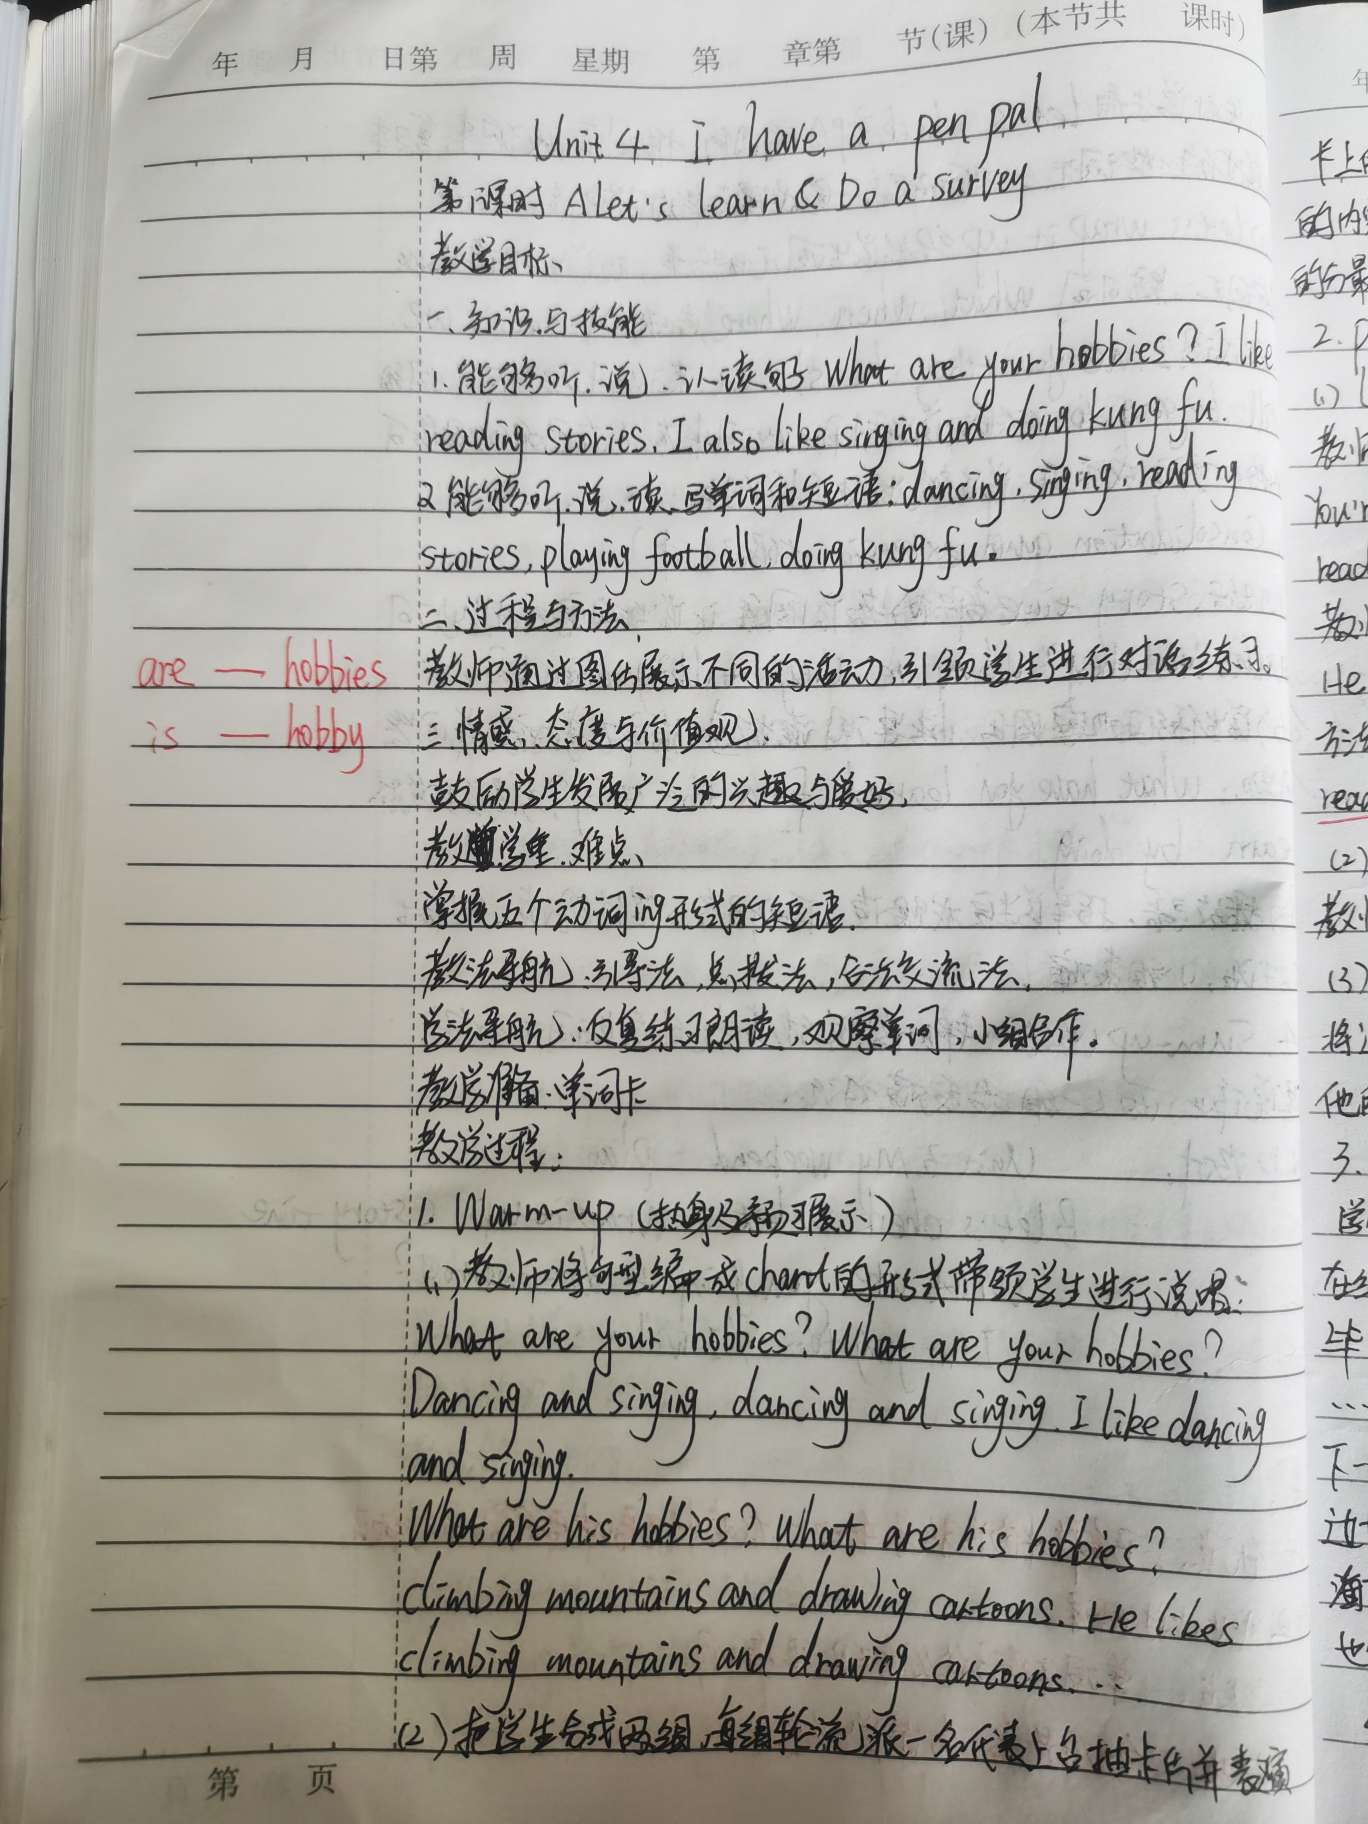 年 月 日第 周 星期 第 章第 节(课)(本节共 课时)
Unit 4 I have a pen pal
第1课时 A Let's learn & Do a survey
教学目标、
一、知识与技能
1. 能够听、说、认读句子 What are your hobbies? I like
reading stories. I also like singing and doing kung fu.
2 能够听、说、读、写单词和短语: dancing, singing, reading
stories, playing football, doing kung fu.
二、过程与方法
教师通过图片展示不同的活动,引领学生进行对话练习。
are — hobbies
is — hobby
三、情感、态度与价值观、
鼓励学生发展广泛的兴趣与爱好,
教学重、难点、
掌握五个动词ing形式的短语.
教法导航、:引导法,点拨法,合法交流法,
学法导航、:反复练习朗读,观察单词,小组合作。
教学准备:单词卡
教学过程:
1. Warm-up (热身及预习展示)
(1)教师将句型编成chant的形式带领学生进行说唱:
What are your hobbies? What are your hobbies?
Dancing and singing, dancing and singing. I like dancing
and singing.
What are his hobbies? What are his hobbies?
climbing mountains and drawing cartoons. He likes
climbing mountains and drawing cartoons...
(2)把学生分成两组,每组轮流派一名代表上台抽卡片并表演
第 页
卡上
的内
2. P
(1)
You'r
read
He
(2)
(3)
他
3.
在
下一